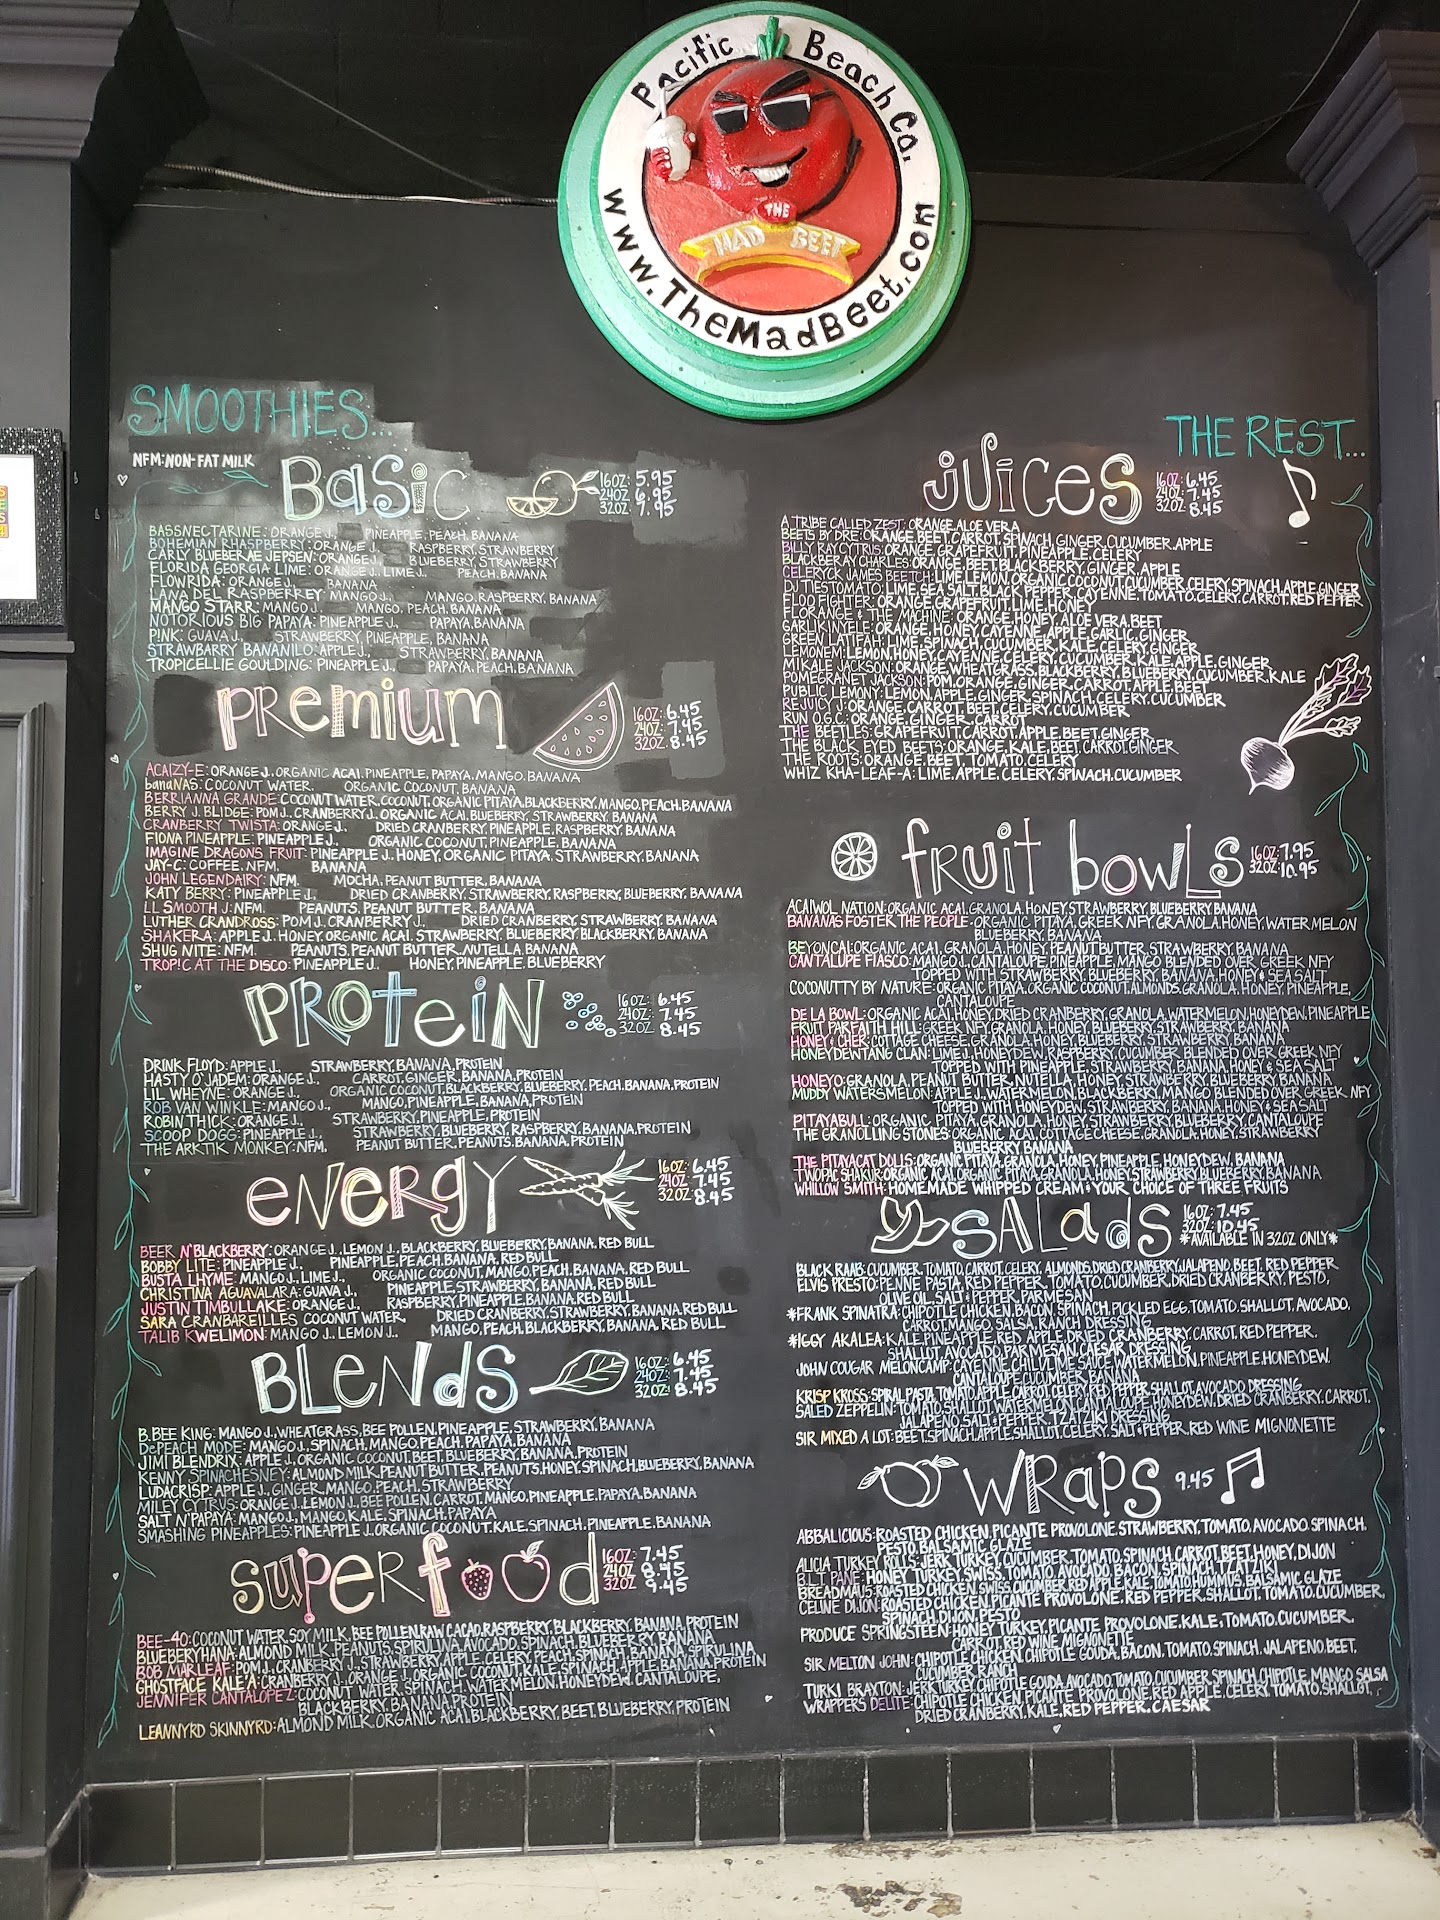 Pacific Beach Co.
THE
MAD BEET
www.TheMadBeet.com
SMOOTHIES...
NFM:NON-FAT MILK
Basic
16OZ: 5.95
24OZ 6.95
32OZ: 7.95
BASSNECTARINE: ORANGE J., PINEAPPLE, PEACH, BANANA
BOHEMIAN RHASPBERRY: ORANGE J., RASPBERRY, STRAWBERRY
CARLY BLUEBERAE JEPSEN: ORANGE J., BLUEBERRY, STRAWBERRY
FLORIDA GEORGIA LIME: ORANGE J., LIME J., PEACH, BANANA
FLOWRIDA: ORANGE J., BANANA
LANA DEL RASPBERREY: MANGO J., MANGO, RASPBERRY, BANANA
MANGO STARR: MANGO J., MANGO, PEACH, BANANA
NOTORIOUS BIG PAPAYA: PINEAPPLE J., PAPAYA, BANANA
P!NK: GUAVA J., STRAWBERRY, PINEAPPLE, BANANA
STRAWBARRY BANANILO: APPLE J., STRAWBERRY, BANANA
TROPICELLIE GOULDING: PINEAPPLE J., PAPAYA, PEACH, BANANA
PREMIUM
16OZ: 6.45
24OZ: 7.45
32OZ. 8.45
ACAIZY-E: ORANGE J., ORGANIC ACAI, PINEAPPLE, PAPAYA, MANGO, BANANA
banaNAS: COCONUT WATER, ORGANIC COCONUT, BANANA
BERRIANNA GRANDE: COCONUT WATER, COCONUT, ORGANIC PITAYA, BLACKBERRY, MANGO, PEACH, BANANA
BERRY J. BLIDGE: POM J., CRANBERRY J., ORGANIC ACAI, BLUEBERRY, STRAWBERRY, BANANA
CRANBERRY TWISTA: ORANGE J., DRIED CRANBERRY, PINEAPPLE, RASPBERRY, BANANA
FIONA PINEAPPLE: PINEAPPLE J., ORGANIC COCONUT, PINEAPPLE, BANANA
IMAGINE DRAGONS FRUIT: PINEAPPLE J., HONEY, ORGANIC PITAYA, STRAWBERRY, BANANA
JAY-C: COFFEE, NFM, BANANA
JOHN LEGENDAIRY: NFM, MOCHA, PEANUT BUTTER, BANANA
KATY BERRY: PINEAPPLE J., DRIED CRANBERRY, STRAWBERRY, RASPBERRY, BLUEBERRY, BANANA
LL SMOOTH J: NFM, PEANUTS, PEANUT BUTTER, BANANA
LUTHER CRANDROSS: POM J., CRANBERRY J., DRIED CRANBERRY, STRAWBERRY, BANANA
SHAKERA: APPLE J., HONEY, ORGANIC ACAI, STRAWBERRY, BLUEBERRY, BLACKBERRY, BANANA
SHUG NITE: NFM, PEANUTS, PEANUT BUTTER, NUTELLA, BANANA
TROP!C AT THE DISCO: PINEAPPLE J., HONEY, PINEAPPLE, BLUEBERRY
PROteiN
16OZ: 6.45
24OZ: 7.45
32OZ 8.45
DRINK FLOYD: APPLE J., STRAWBERRY, BANANA, PROTEIN
HASTY O'JADEM: ORANGE J., CARROT, GINGER, BANANA, PROTEIN
LIL WHEYNE: ORANGE J., ORGANIC COCONUT, BLACKBERRY, BLUEBERRY, PEACH, BANANA, PROTEIN
ROB VAN WINKLE: MANGO J., MANGO, PINEAPPLE, BANANA, PROTEIN
ROBIN THICK: ORANGE J., STRAWBERRY, PINEAPPLE, PROTEIN
SCOOP DOGG: PINEAPPLE J., STRAWBERRY, BLUEBERRY, RASPBERRY, BANANA, PROTEIN
THE ARKTIK MONKEY: NFM, PEANUT BUTTER, PEANUTS, BANANA, PROTEIN
eNergy
16OZ: 6.45
24OZ 7.45
32OZ 8.45
BEER N' BLACKBERRY: ORANGE J., LEMON J., BLACKBERRY, BLUEBERRY, BANANA, RED BULL
BOBBY LITE: PINEAPPLE J., PINEAPPLE, PEACH, BANANA, RED BULL
BUSTA LHYME: MANGO J., LIME J., ORGANIC COCONUT, MANGO, PEACH, BANANA, RED BULL
CHRISTINA AGUAVALARA: GUAVA J., PINEAPPLE, STRAWBERRY, BANANA, RED BULL
JUSTIN TIMBULLAKE: ORANGE J., RASPBERRY, PINEAPPLE, BANANA, RED BULL
SARA CRANBAREILLES COCONUT WATER, DRIED CRANBERRY, STRAWBERRY, BANANA, RED BULL
TALIB KWELIMON: MANGO J., LEMON J., MANGO, PEACH, BLACKBERRY, BANANA, RED BULL
BLeNds
16OZ: 6.45
24OZ: 7.45
32OZ: 8.45
B.BEE KING: MANGO J., WHEATGRASS, BEE POLLEN, PINEAPPLE, STRAWBERRY, BANANA
DePEACH MODE: MANGO J., SPINACH, MANGO, PEACH, PAPAYA, BANANA
JIMI BLENDRIX: APPLE J., ORGANIC COCONUT, BEET, BLUEBERRY, BANANA, PROTEIN
KENNY SPINACHESNEY: ALMOND MILK, PEANUT BUTTER, PEANUTS, HONEY, SPINACH, BLUEBERRY, BANANA
LUDACRISP: APPLE J., GINGER, MANGO, PEACH, STRAWBERRY
MILEY CYTRUS: ORANGE J., LEMON J., BEE POLLEN, CARROT, MANGO, PINEAPPLE, PAPAYA, BANANA
SALT N' PAPAYA: MANGO J., MANGO, KALE, SPINACH, PAPAYA
SMASHING PINEAPPLES: PINEAPPLE J., ORGANIC COCONUT, KALE, SPINACH, PINEAPPLE, BANANA
superfood
16OZ: 7.45
24OZ 8.45
32OZ 9.45
BEE-40: COCONUT WATER, SOY MILK, BEE POLLEN, RAW CACAO, RASPBERRY, BLACKBERRY, BANANA, PROTEIN
BLUEBERYHANA: ALMOND MILK, PEANUTS, SPIRULINA, AVOCADO, SPINACH, BLUEBERRY, BANANA
BOB MARLEAF: POM J., CRANBERRY J., STRAWBERRY, APPLE, CELERY, PEACH, SPINACH, BANANA, SPIRULINA
GHOSTFACE KALE'A: CRANBERRY J., ORANGE J., ORGANIC COCONUT, KALE, SPINACH, APPLE, BANANA, PROTEIN
JENNIFER CANTALOPEZ: COCONUT WATER, SPINACH, WATERMELON, HONEYDEW, CANTALOUPE,
BLACKBERRY, BANANA, PROTEIN
LEANNYRD SKINNYRD: ALMOND MILK, ORGANIC ACAI, BLACKBERRY, BEET, BLUEBERRY, PROTEIN
THE REST...
juices
16OZ: 6.45
24OZ: 7.45
32OZ: 8.45
A TRIBE CALLED ZEST: ORANGE, ALOE VERA
BEETS BY DRE: ORANGE, BEET, CARROT, SPINACH, GINGER, CUCUMBER, APPLE
BILLY RAY CYTRUS: ORANGE, GRAPEFRUIT, PINEAPPLE, CELERY
BLACKBERAY CHARLES: ORANGE, BEET, BLACKBERRY, GINGER, APPLE
CELERYCK JAMES BEETCH: LIME, LEMON, ORGANIC COCONUT, CUCUMBER, CELERY, SPINACH, APPLE, GINGER
DJ TIESTOMATO: LIME, SEA SALT, BLACK PEPPER, CAYENNE, TOMATO, CELERY, CARROT, RED PEPPER
FLOO FIGHTER: ORANGE, GRAPEFRUIT, LIME, HONEY
FLORANGE & THE MACHINE: ORANGE, HONEY, ALOE VERA, BEET
GARLIK NYELE: ORANGE, HONEY, CAYENNE, APPLE, GARLIC, GINGER
GREEN LATIFAH: LIME, SPINACH, CUCUMBER, KALE, CELERY, GINGER
LEMONEM: LEMON, HONEY, CAYENNE, CELERY, CUCUMBER, KALE, APPLE, GINGER
MIKALE JACKSON: ORANGE, WHEATGRASS, BLACKBERRY, BLUEBERRY, CUCUMBER, KALE
POMEGRANET JACKSON: POM, ORANGE, GINGER, CARROT, APPLE, BEET
PUBLIC LEMONY: LEMON, APPLE, GINGER, SPINACH, CELERY, CUCUMBER
REJUICY J: ORANGE, CARROT, BEET, CELERY, CUCUMBER
RUN O.G.C: ORANGE, GINGER, CARROT
THE BEETLES: GRAPEFRUIT, CARROT, APPLE, BEET, GINGER
THE BLACK EYED BEETS: ORANGE, KALE, BEET, CARROT, GINGER
THE ROOTS: ORANGE, BEET, TOMATO, CELERY
WHIZ KHA-LEAF-A: LIME, APPLE, CELERY, SPINACH, CUCUMBER
fRuit bowls
16OZ: 7.95
32OZ: 10.95
ACAIWOL NATION: ORGANIC ACAI, GRANOLA, HONEY, STRAWBERRY, BLUEBERRY, BANANA
BANANAS FOSTER THE PEOPLE: ORGANIC PITAYA, GREEK NFY, GRANOLA, HONEY, WATERMELON
BLUEBERRY, BANANA
BEYONCAI: ORGANIC ACAI, GRANOLA, HONEY, PEANUT BUTTER, STRAWBERRY, BANANA
CANTALUPE FIASCO: MANGO J., CANTALOUPE, PINEAPPLE, MANGO BLENDED OVER GREEK NFY
TOPPED WITH STRAWBERRY, BLUEBERRY, BANANA, HONEY & SEA SALT
COCONUTTY BY NATURE: ORGANIC PITAYA, ORGANIC COCONUT, ALMONDS, GRANOLA, HONEY, PINEAPPLE,
CANTALOUPE
DE LA BOWL: ORGANIC ACAI, HONEY, DRIED CRANBERRY, GRANOLA, WATERMELON, HONEYDEW, PINEAPPLE
FRUIT PARFAITH HILL: GREEK NFY, GRANOLA, HONEY, BLUEBERRY, STRAWBERRY, BANANA
HONEY & CHER: COTTAGE CHEESE, GRANOLA, HONEY, BLUEBERRY, STRAWBERRY, BANANA
HONEYDEWTANG CLAN: LIME J., HONEYDEW, RASPBERRY, CUCUMBER BLENDED OVER GREEK NFY
TOPPED WITH PINEAPPLE, STRAWBERRY, BANANA, HONEY & SEA SALT
HONEYO: GRANOLA, PEANUT BUTTER, NUTELLA, HONEY, STRAWBERRY, BLUEBERRY, BANANA
MUDDY WATERSMELON: APPLE J., WATERMELON, BLACKBERRY, MANGO BLENDED OVER GREEK NFY
TOPPED WITH HONEYDEW, STRAWBERRY, BANANA, HONEY & SEA SALT
PITAYABULL: ORGANIC PITAYA, GRANOLA, HONEY, STRAWBERRY, BLUEBERRY, CANTALOUPE
THE GRANOLLING STONES: ORGANIC ACAI, COTTAGE CHEESE, GRANOLA, HONEY, STRAWBERRY
BLUEBERRY, BANANA
THE PITAYACAT DOLLS: ORGANIC PITAYA, GRANOLA, HONEY, PINEAPPLE, HONEYDEW, BANANA
TWOPAC SHAKUR: ORGANIC ACAI, ORGANIC PITAYA, GRANOLA, HONEY, STRAWBERRY, BLUEBERRY, BANANA
WHILLOW SMITH: HOMEMADE WHIPPED CREAM & YOUR CHOICE OF THREE FRUITS
SALads
16OZ: 7.45
32OZ: 10.45
*AVAILABLE IN 32OZ ONLY*
BLACK RAAB: CUCUMBER, TOMATO, CARROT, CELERY, ALMONDS, DRIED CRANBERRY, JALAPENO, BEET, RED PEPPER
ELVIS PRESTO: PENNE PASTA, RED PEPPER, TOMATO, CUCUMBER, DRIED CRANBERRY, PESTO,
OLIVE OIL, SALT & PEPPER, PARMESAN
*FRANK SPINATRA: CHIPOTLE CHICKEN, BACON, SPINACH, PICKLED EGG, TOMATO, SHALLOT, AVOCADO,
CARROT, MANGO, SALSA, RANCH DRESSING
*IGGY AKALEA: KALE, PINEAPPLE, RED APPLE, DRIED CRANBERRY, CARROT, RED PEPPER,
SHALLOT, AVOCADO, PARMESAN, CAESAR DRESSING
JOHN COUGAR MELONCAMP: CAYENNE, CHILI/LIME SAUCE, WATERMELON, PINEAPPLE, HONEYDEW,
CANTALOUPE, CUCUMBER, BANANA
KRISP KROSS: SPIRAL PASTA, TOMATO, APPLE, CARROT, CELERY, RED PEPPER, SHALLOT, AVOCADO DRESSING
SALED ZEPPELIN: TOMATO, SHALLOT, WATERMELON, CANTALOUPE, HONEYDEW, DRIED CRANBERRY, CARROT,
JALAPENO, SALT & PEPPER, TZATZIKI DRESSING
SIR MIXED A LOT: BEET, SPINACH, APPLE, SHALLOT, CELERY, SALT & PEPPER, RED WINE MIGNONETTE
wRaps
9.45
ABBALICIOUS: ROASTED CHICKEN, PICANTE PROVOLONE, STRAWBERRY, TOMATO, AVOCADO, SPINACH,
PESTO, BALSAMIC GLAZE
ALICIA TURKEY ROLLS: JERK TURKEY, CUCUMBER, TOMATO, SPINACH, CARROT, BEET, HONEY, DIJON
B.L.T PANE: HONEY TURKEY, SWISS, TOMATO, AVOCADO, BACON, SPINACH, TZATZIKI
BREADMAU5: ROASTED CHICKEN, SWISS, CUCUMBER, RED APPLE, KALE, TOMATO, HUMMUS, BALSAMIC GLAZE
CELINE DIJON: ROASTED CHICKEN, PICANTE PROVOLONE, RED PEPPER, SHALLOT, TOMATO, CUCUMBER,
SPINACH, DIJON, PESTO
PRODUCE SPRINGSTEEN: HONEY TURKEY, PICANTE PROVOLONE, KALE, TOMATO, CUCUMBER,
CARROT, RED WINE MIGNONETTE
SIR MELTON JOHN: CHIPOTLE CHICKEN, CHIPOTLE GOUDA, BACON, TOMATO, SPINACH, JALAPENO, BEET,
CUCUMBER, RANCH
TURKI BRAXTON: JERK TURKEY, CHIPOTLE GOUDA, AVOCADO, TOMATO, CUCUMBER, SPINACH, CHIPOTLE, MANGO SALSA
WRAPPERS DELITE: CHIPOTLE CHICKEN, PICANTE PROVOLONE, RED APPLE, CELERY, TOMATO, SHALLOT,
DRIED CRANBERRY, KALE, RED PEPPER, CAESAR